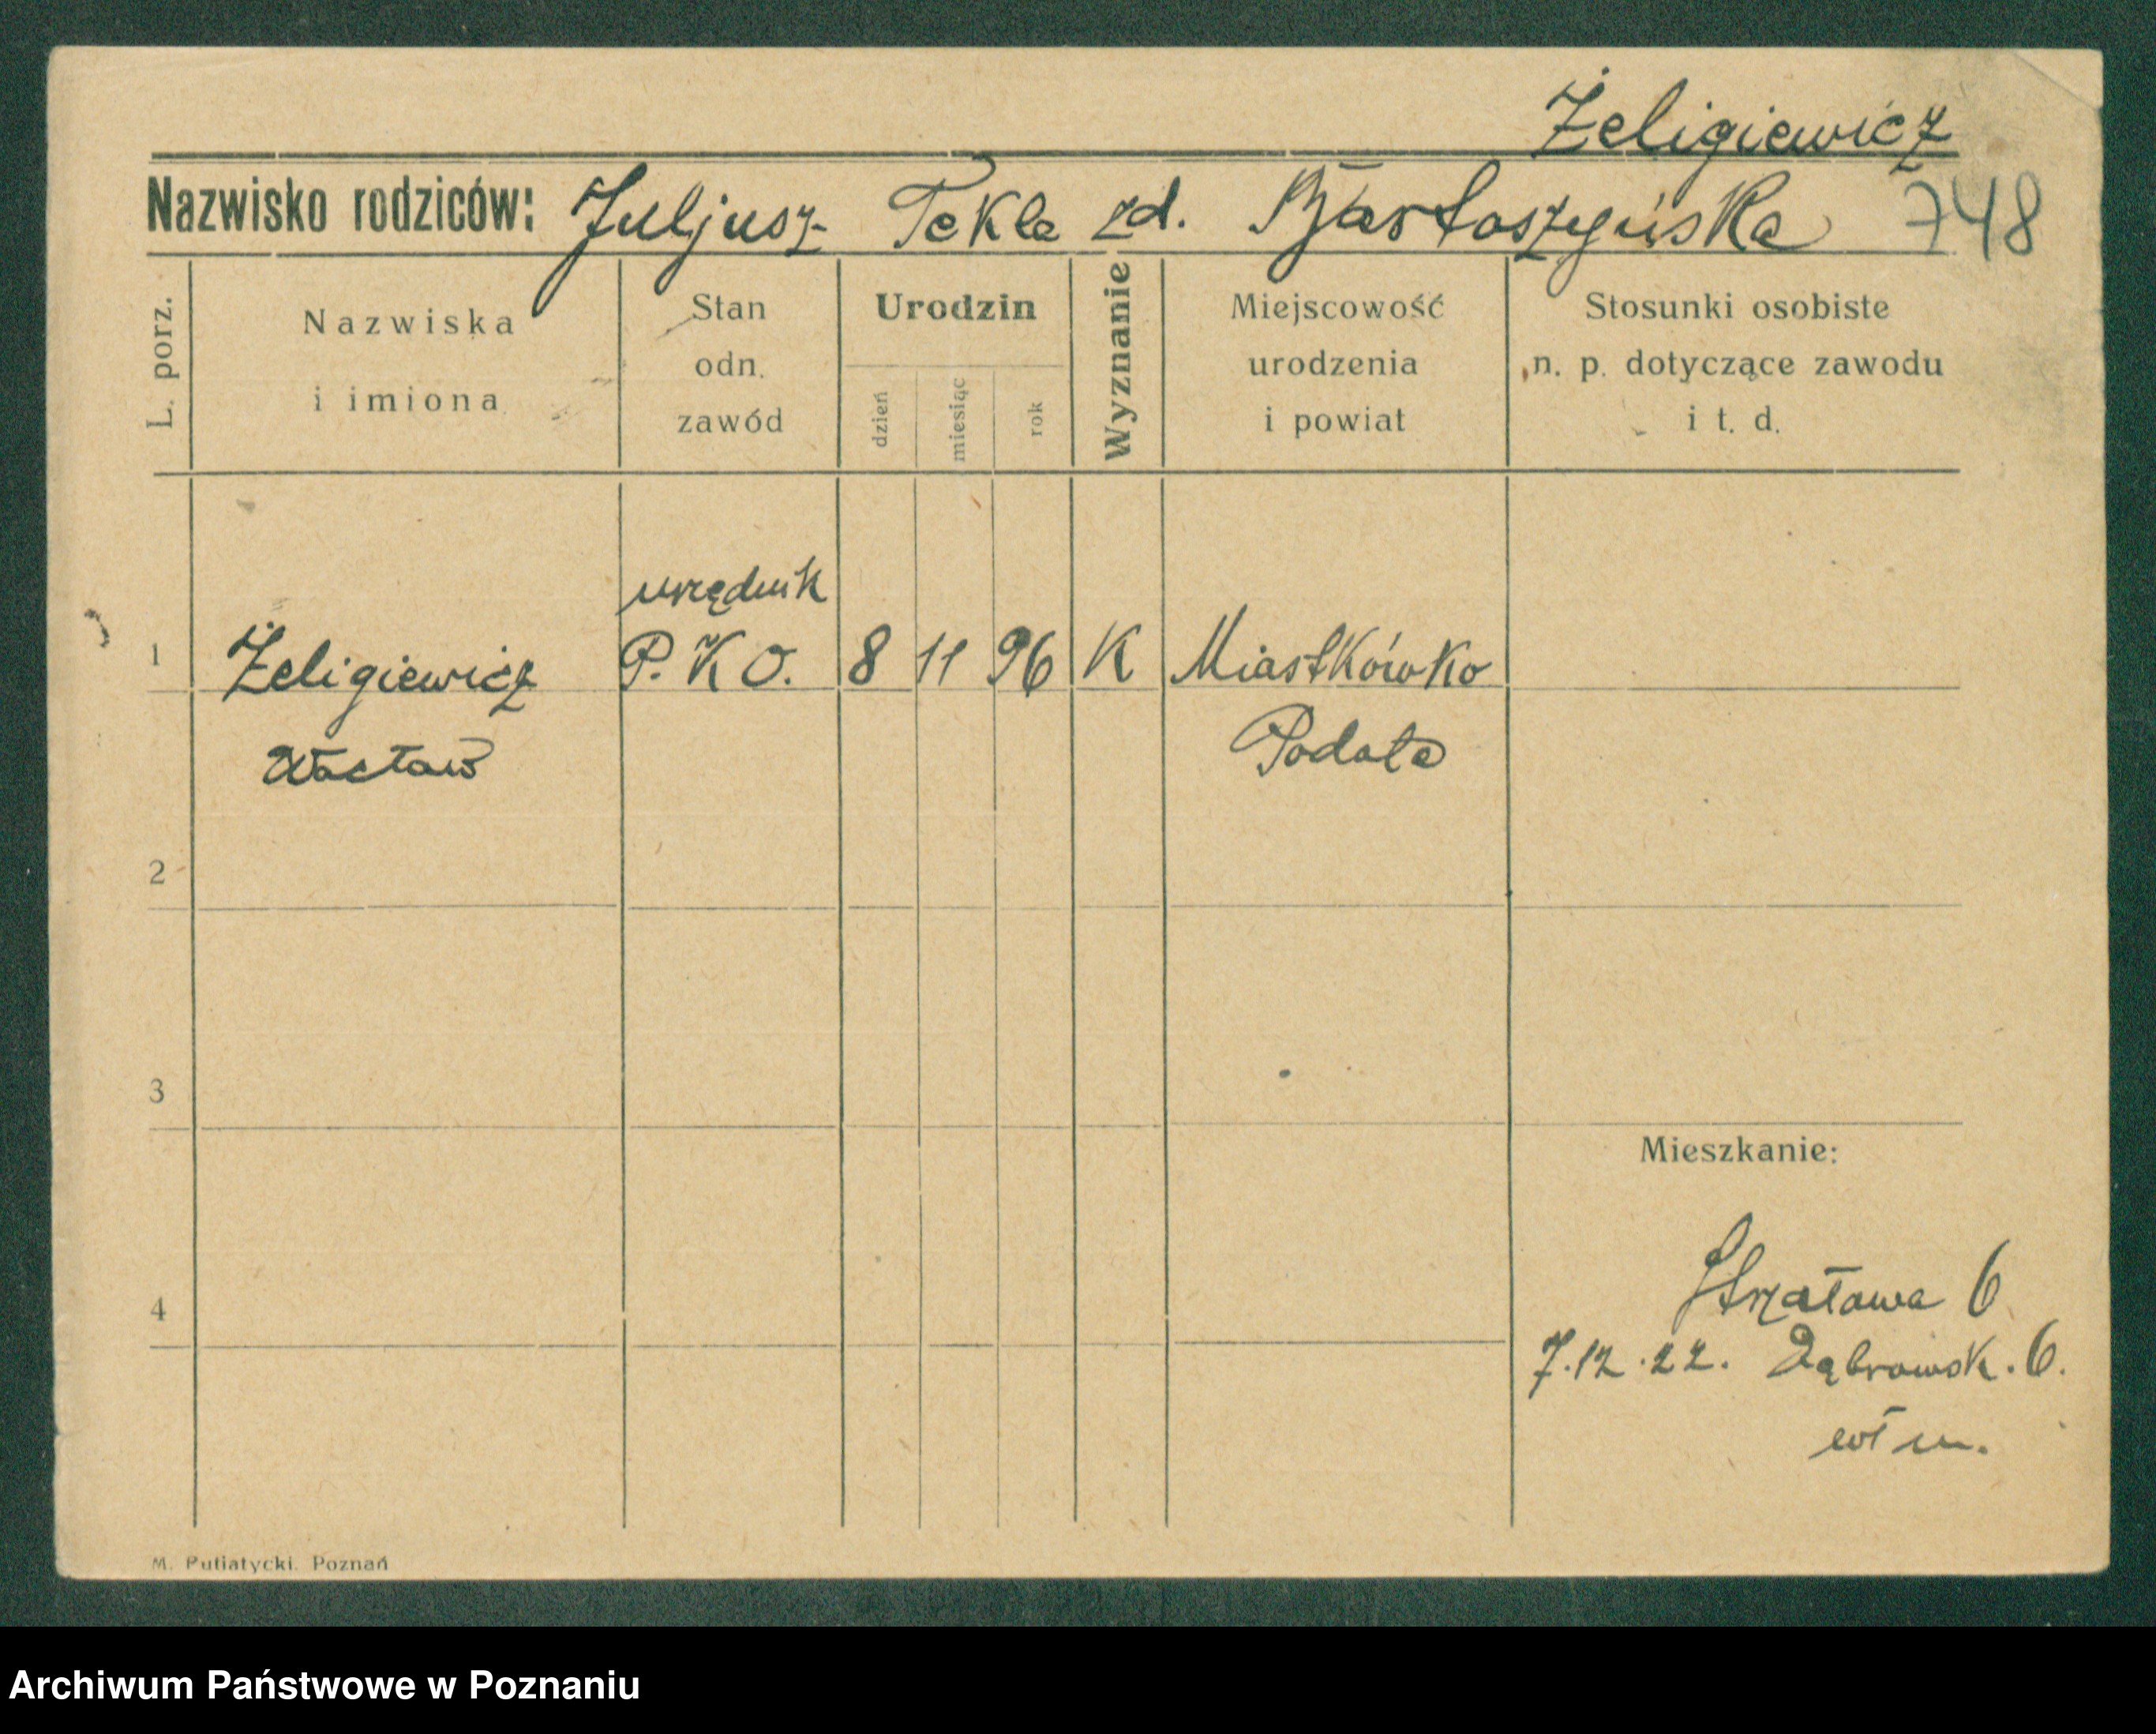 Żeligiewicz
Nazwisko rodziców: Juljusz Tekla zd. Bartoszyńska 748
L. porz.
Nazwiska
i imiona
Stan
odn.
zawód
Urodzin
dzień
miesiąc
rok
Wyznanie
Miejscowość
urodzenia
i powiat
Stosunki osobiste
n. p. dotyczące zawodu
i t. d.
urzędnik
1 Żeligiewicz P.K.O. 8 11 96 K Miastkówko
Wacław
2
3
Mieszkanie:
4
Strzałowa 6
7.12.22. Dąbrowsk. 6.
M. Putiatycki. Poznań
Archiwum Państwowe w Poznaniu